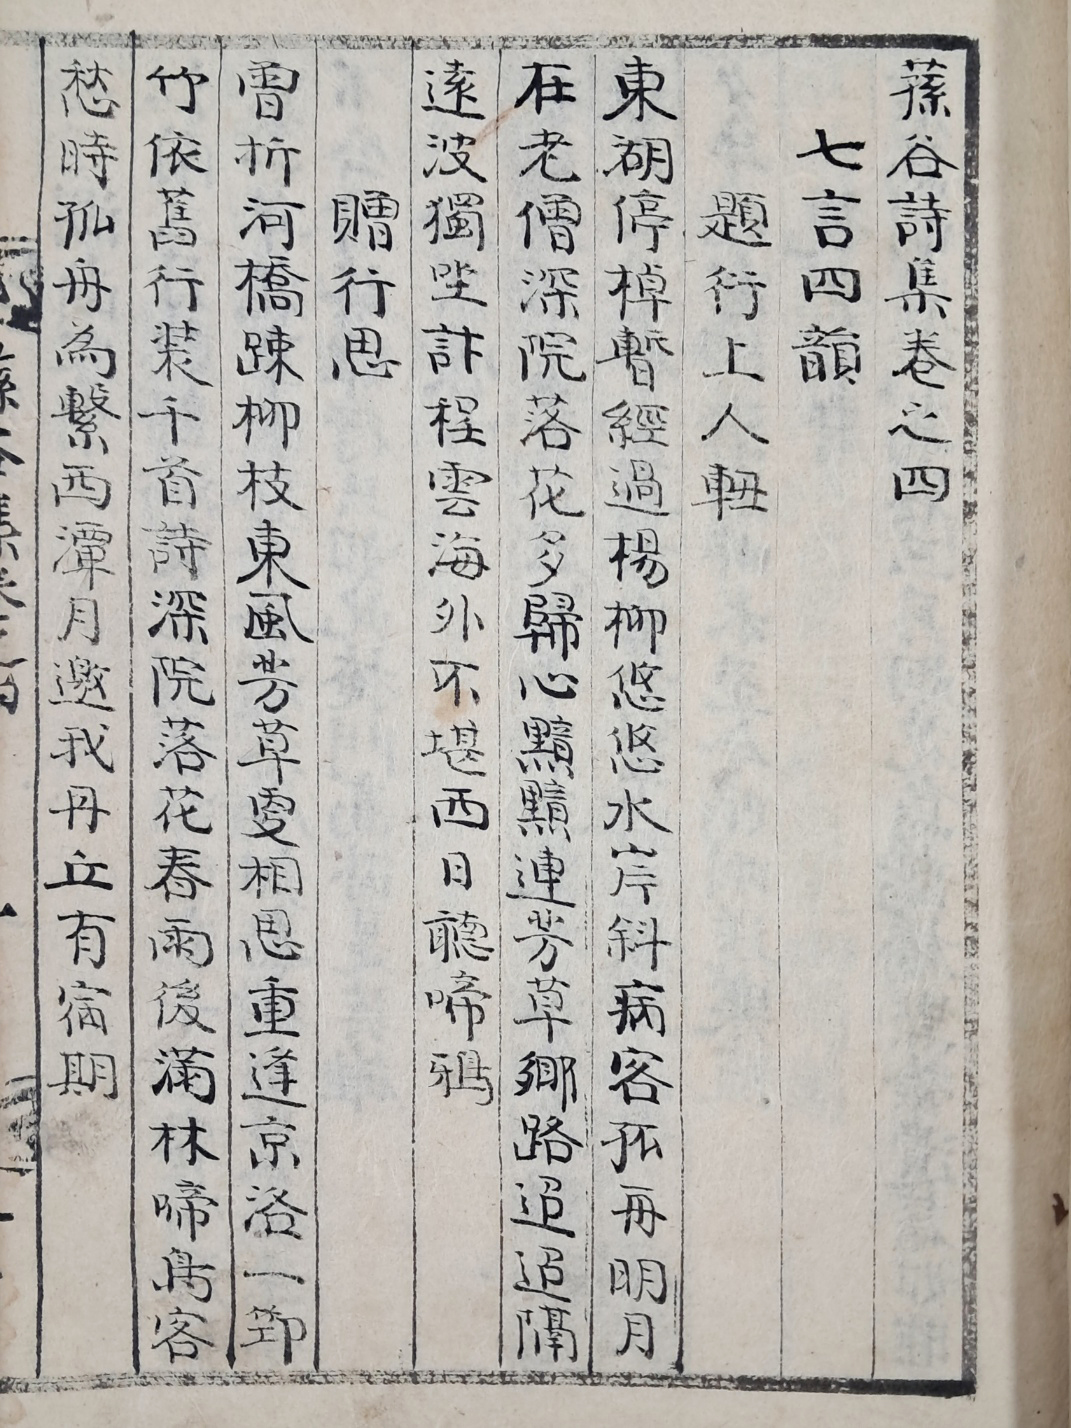 蓀谷詩集卷之四
七言四韻
題衍上人軸
東湖停棹暫經過楊柳悠悠水岸斜病客孤舟明月
在老僧深院落花多歸心黯黯連芳草鄉路迢迢隔
遠波獨坐計程雲海外不堪西日聽啼鴉
贈行思
曾折河橋踈柳枝東風芳草更相思重逢京洛一邛
竹依舊行裝千首詩深院落花春雨後滿林啼鳥客
愁時孤舟為繫西潭月邀我丹丘有宿期